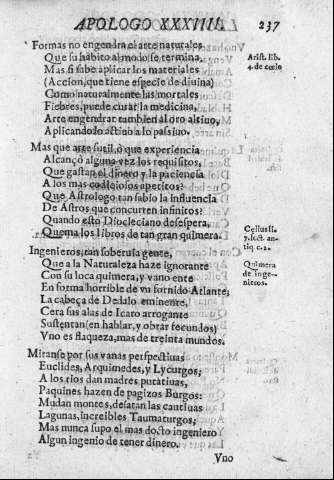 APOLOGO XXXIIII.
237
Formas no engendra el arte naturales
Que su habito al modo se termina,
Mas si sabe aplicar los materiales
(Accion, que tiene especie de diuina)
Como naturalmente las mortales
Fiebres, puede curar la medicina,
Arte engendrar tambien al oro altiuo,
Aplicando lo actiuo a lo passiuo.
Arist. lib.
4. de cœlo
Mas que arte sutil, ò que experiencia
Alcançò alguna vez los requisitos,
Que gastan el dinero y la paciencia
A los mas codiciosos apetitos?
Que Astrologo tan sabio la influencia
De Astros que concurren infinitos?
Quando esto Diocleciano desespera,
Quema los libros de tan gran quimera.
Ingenieros, tan soberuia gente,
Que a la Naturaleza haze ignorante
Con su loca quimera, y vano ente
En forma horrible de vn fornido Atlante;
La cabeça de Dedalo eminente,
Cera sus alas de Icaro arrogante
Sustentan (en hablar, y obrar fecundos)
Vno es flaqueza, mas de treinta mundos.
Quimera
de inge-
nieros.
Miranse por sus vanas perspectiuas
Euclides, Arquimedes, y Lycurgos;
A los rios dan madres putatiuas,
Paquines hazen de pagizos Burgos:
Mudan montes, desatan las cautiuas
Lagunas, increibles Taumaturgos;
Mas nunca supo el mas docto ingeniero
Algun ingenio de tener dinero.
Vno